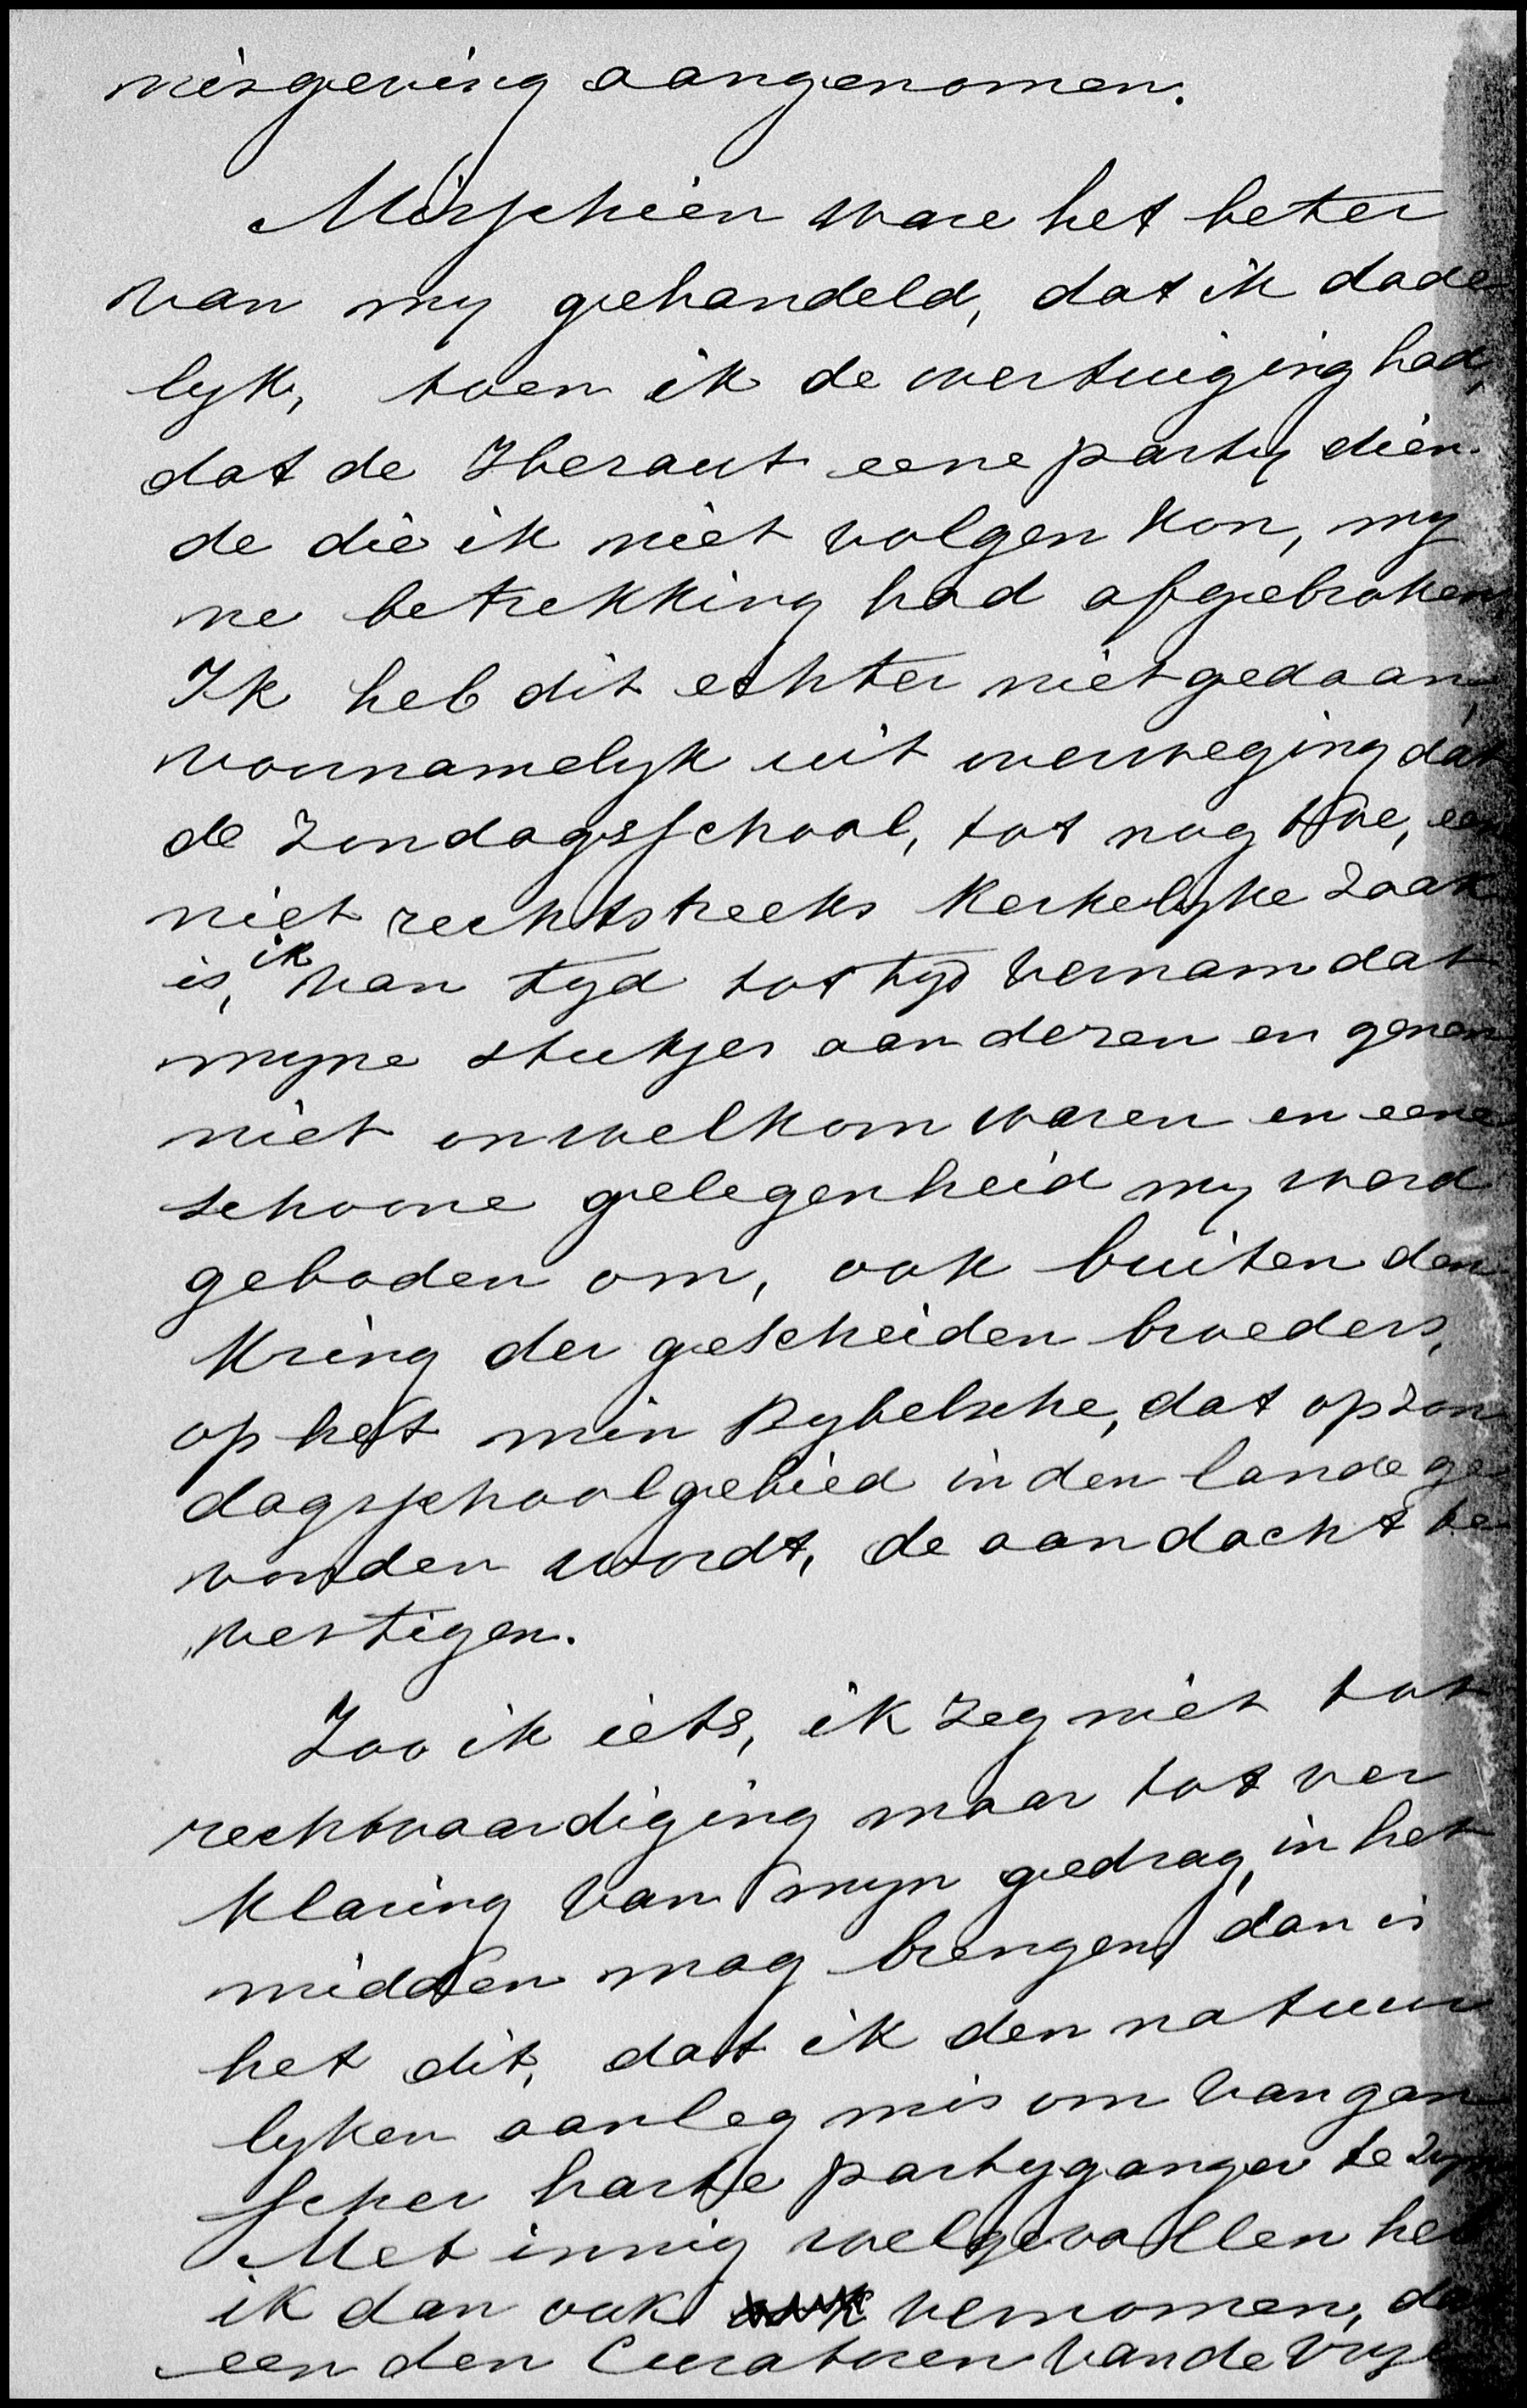 nisgeving aangenomen.
Misschien ware het beter
van my gehandeld, dat ik dade
lyk, toen ik de overtuiging had,
dat de Heraut eene party dien-
de die ik niet volgen kon, my
ne betrekking had afgebroken
Ik heb dit echter niet gedaan,
voornamelyk uit overweging dat
de Zondagsschool, tot nog toe, een
niet rechtstreeks Kerkelyke zaak
is, ik van tyd tot tyd vernam dat
myne stukjes aan dezen en genen
niet onwelkom waren en eene
schoone gelegenheid my werd
geboden om, ook buiten den
Kring der gescheiden broeders,
op het min Bybelsche, dat op Zon
dagsschoolgebied in den lande ge
vonden wordt, de aandacht te
vestigen.
Zoo ik iets, ik zeg niet tot
rechtvaardiging maar tot ver
klaring van myn gedrag, in het
midden mag brengen, dan is
het dit, dat ik den natuur
lyken aanleg mis om van gan
scher harte partyganger te zyn
Met innig welgevallen heb
ik dan ook vernomen, dat
een den Curatoren van de Vrye